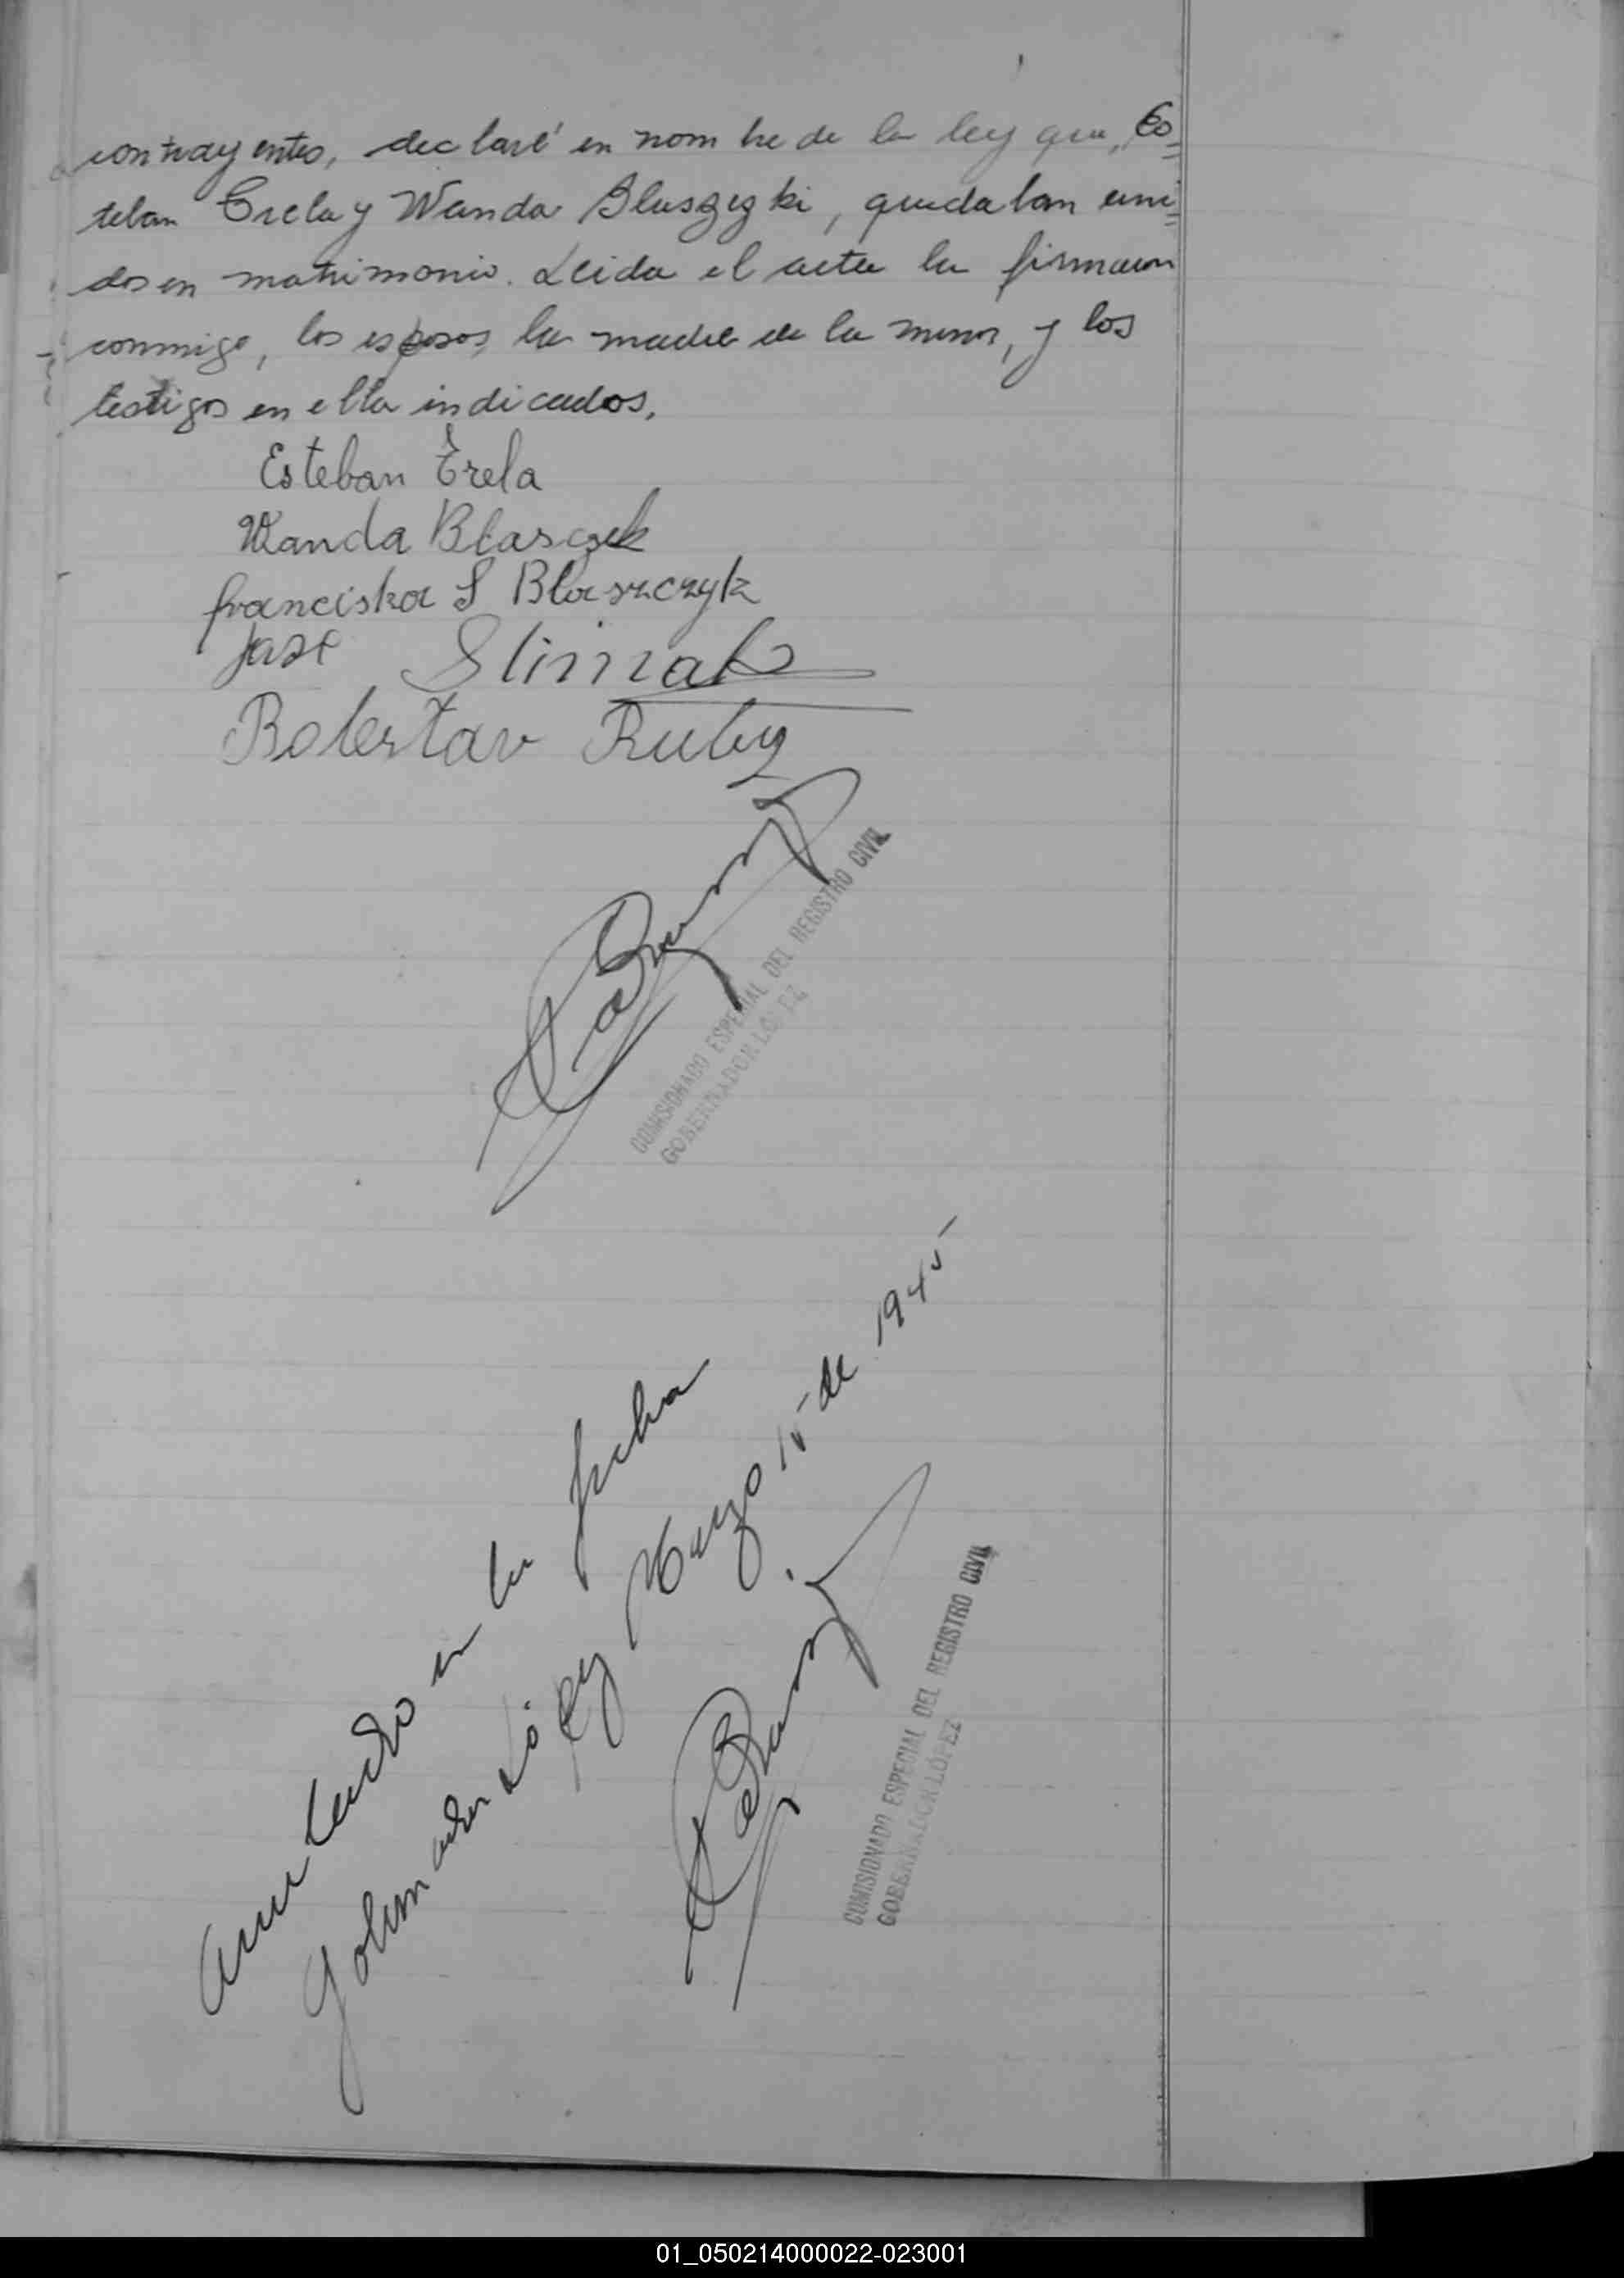 contrayentes, declaré en nombre de la ley que, Es=
teban Trela y Wanda Bluszezki, quedaban uni=
dos en matrimonio. Leida el acta la firmaron
conmigo, los esposos, la madre de la menor, y los
testigos en ella indicados.
Esteban Trela
Wanda Blasczek
franciska S Blaszczyk
Jose Slimak
Bolestav Ruby
COMISIONADO ESPECIAL DEL REGISTRO CIVIL
GOBERNADOR LÓPEZ
en la fecha
Gobernador López Marzo 15 de 1945
COMISIONADO ESPECIAL DEL REGISTRO CIVIL
GOBERNADOR LÓPEZ
01_050214000022-023001